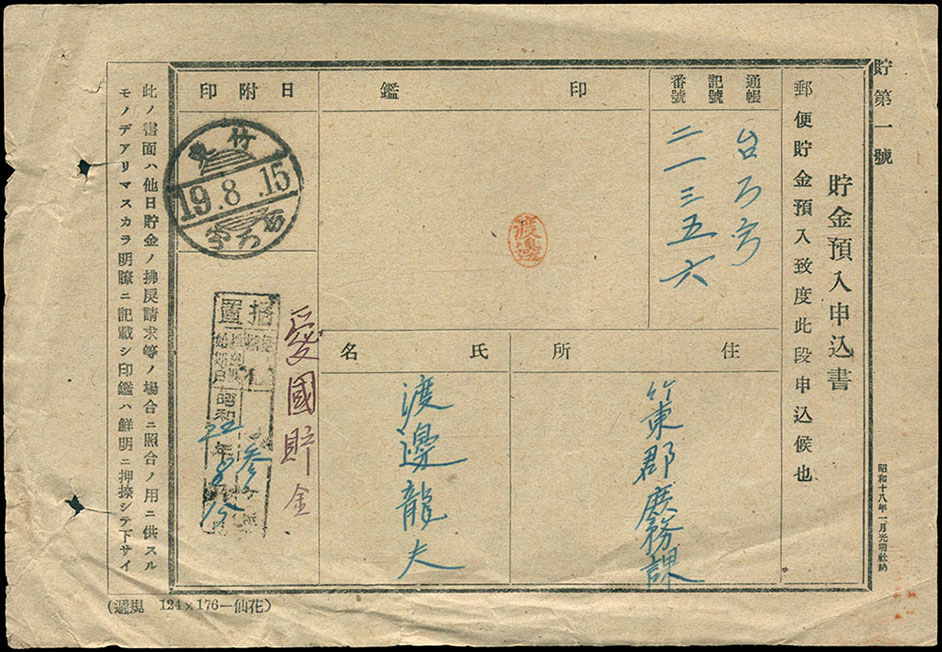 貯第一號
貯金預入申込書
郵便貯金預入致度此段申込候也
通帳
記號
番號
台ろ第
二一三五六
印鑑
渡邊
日附印
竹東
19.8.15
住所
竹東郡庶務課
氏名
渡邊龍夫
愛國貯金
据置
昭和
22年8月15
参
此ノ書面ハ他日貯金ノ拂戻請求等ノ場合ニ照合ノ用ニ供スル
モノデアリマスカラ明瞭ニ記載シ印鑑ハ鮮明ニ押捺シテ下サイ
昭和十八年一月光明社納
(遞規 124×176—仙花)